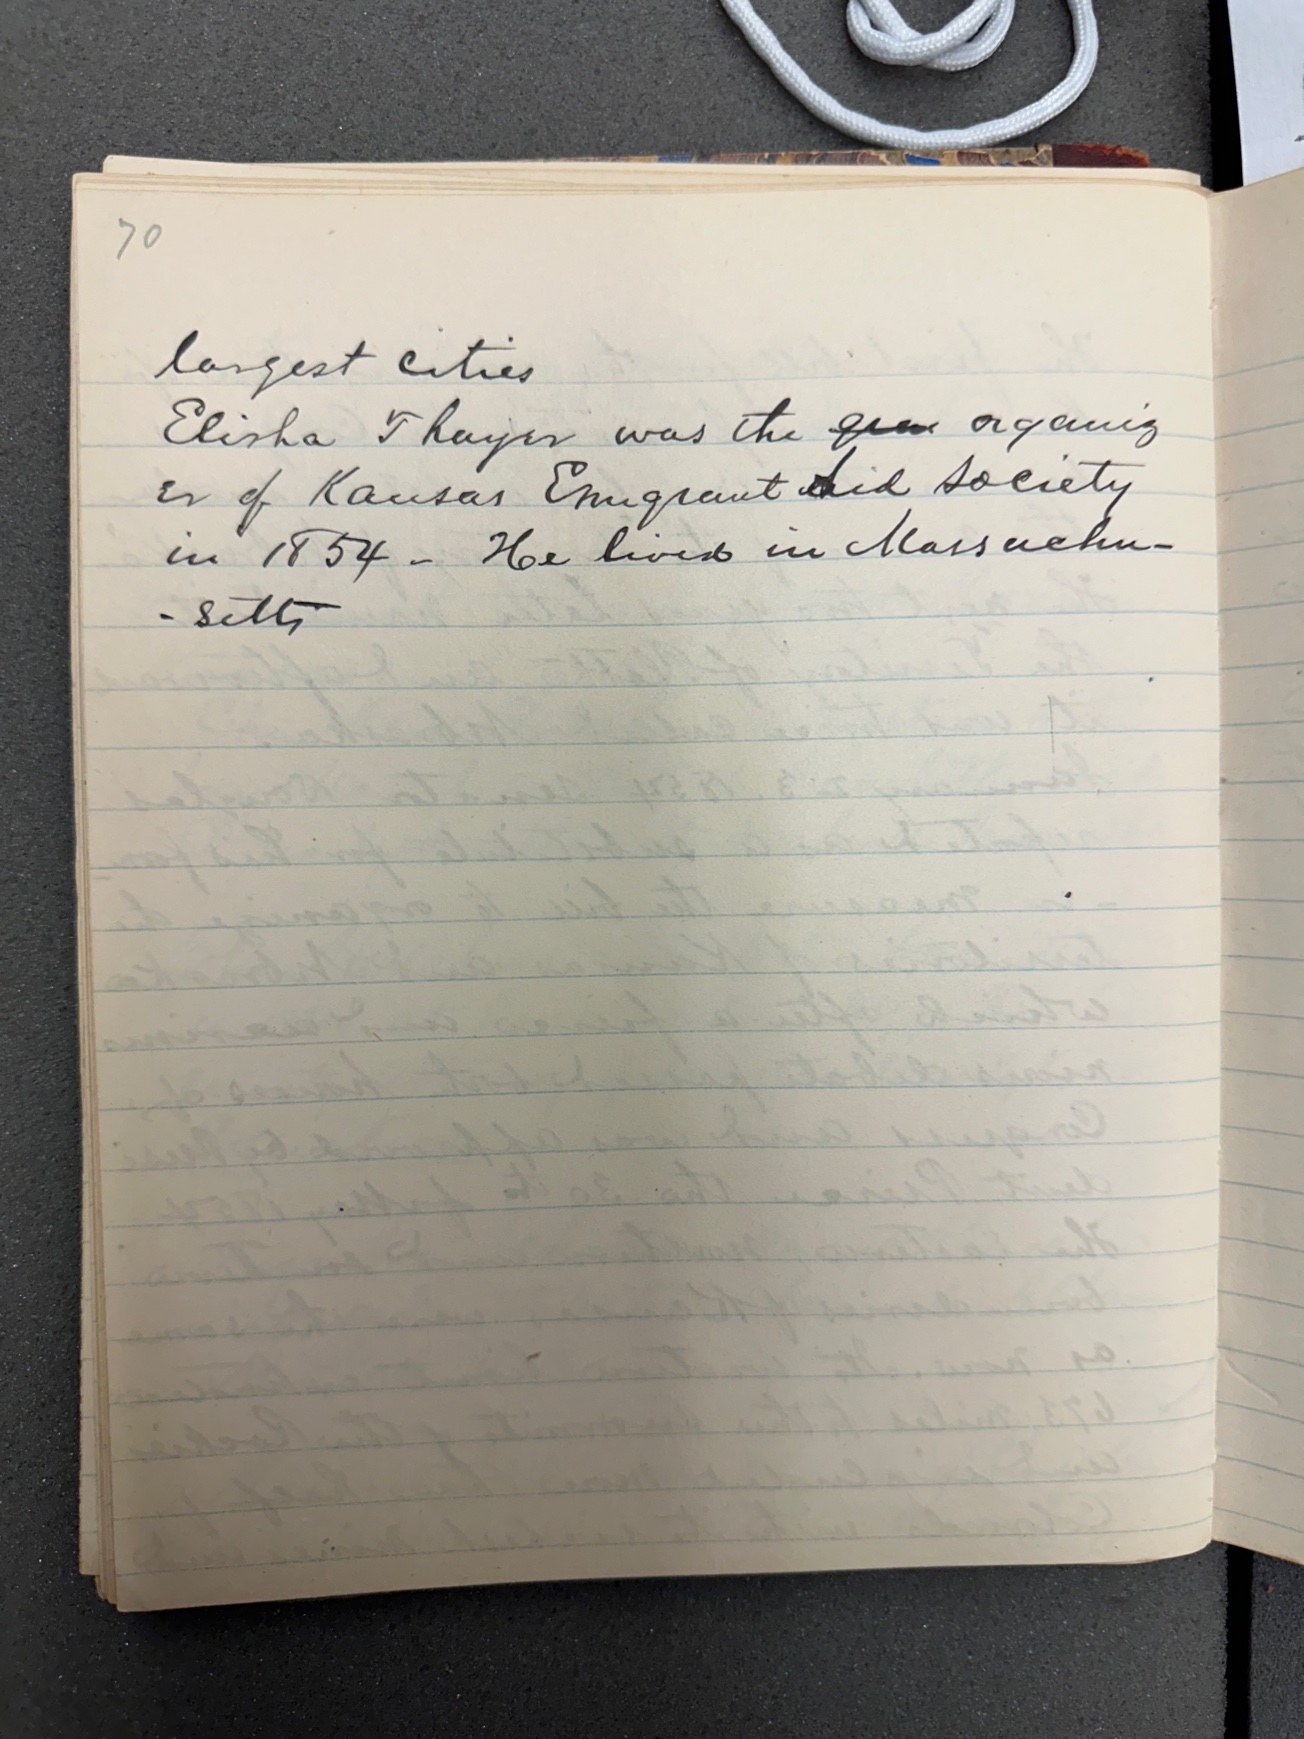 70
largest cities
Elisha Thayer was the organiz
er of Kansas Emigrant Aid Society
in 1854 - He lived in Massachu-
-setts